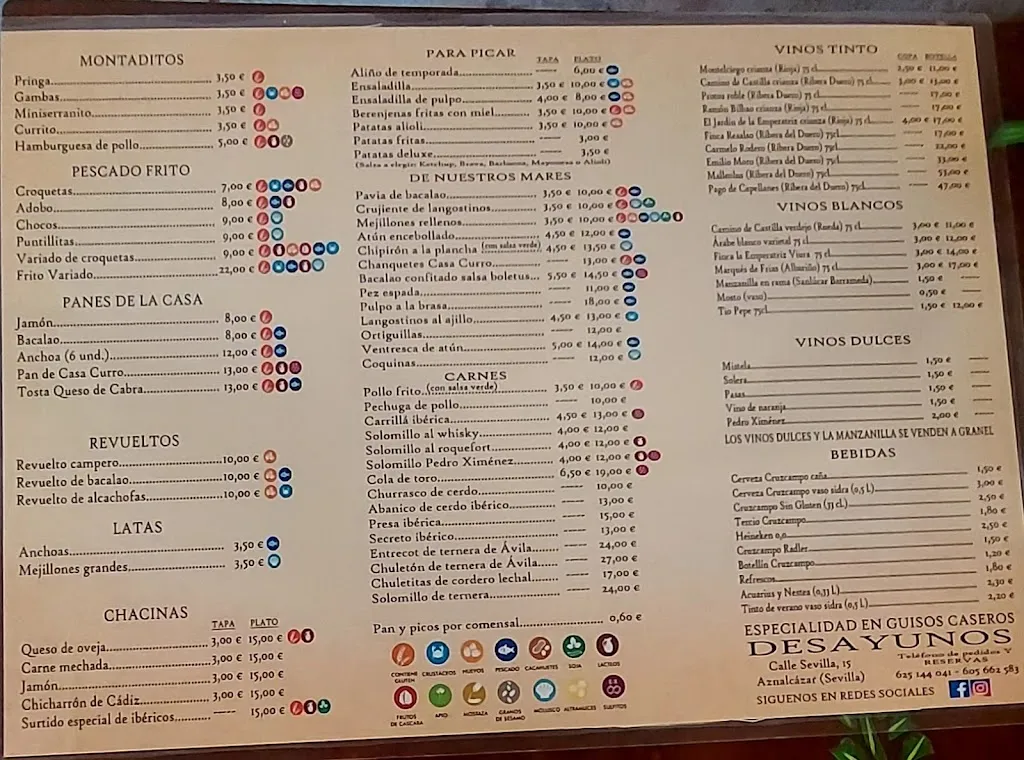 MONTADITOS
Pringa 3,50 €
Gambas 3,50 €
Miniserranito 3,50 €
Currito 3,50 €
Hamburguesa de pollo 5,00 €
PESCADO FRITO
Croquetas 7,00 €
Adobo 8,00 €
Chocos 9,00 €
Puntillitas 9,00 €
Variado de croquetas 9,00 €
Frito Variado 22,00 €
PANES DE LA CASA
Jamón 8,00 €
Bacalao 8,00 €
Anchoa (6 und.) 12,00 €
Pan de Casa Curro 13,00 €
Tosta Queso de Cabra 13,00 €
REVUELTOS
Revuelto campero 10,00 €
Revuelto de bacalao 10,00 €
Revuelto de alcachofas 10,00 €
LATAS
Anchoas 3,50 €
Mejillones grandes 3,50 €
CHACINAS
TAPA PLATO
Queso de oveja 3,00 € 15,00 €
Carne mechada 3,00 € 15,00 €
Jamón 3,00 € 15,00 €
Chicharrón de Cádiz 3,00 € 15,00 €
Surtido especial de ibéricos ----- 15,00 €
PARA PICAR
TAPA PLATO
Aliño de temporada ----- 6,00 €
Ensaladilla 3,50 € 10,00 €
Ensaladilla de pulpo 4,00 € 8,00 €
Berenjenas fritas con miel 3,50 € 10,00 €
Patatas alioli 3,50 € 10,00 €
Patatas fritas ----- 3,00 €
Patatas deluxe ----- 3,50 €
(Salsa a elegir: Ketchup, Brava, Barbacoa, Mayonesa o Alioli)
DE NUESTROS MARES
Pavia de bacalao 3,50 € 10,00 €
Crujiente de langostinos 3,50 € 10,00 €
Mejillones rellenos 3,50 € 10,00 €
Atún encebollado 4,50 € 12,00 €
Chipirón a la plancha (con salsa verde) 4,50 € 13,50 €
Chanquetes Casa Curro ----- 13,00 €
Bacalao confitado salsa boletus 5,50 € 14,50 €
Pez espada ----- 11,00 €
Pulpo a la brasa ----- 18,00 €
Langostinos al ajillo 4,50 € 13,00 €
Ortiguillas ----- 12,00 €
Ventresca de atún 5,00 € 14,00 €
Coquinas ----- 12,00 €
CARNES
Pollo frito (con salsa verde) 3,50 € 10,00 €
Pechuga de pollo ----- 10,00 €
Carrillá ibérica 4,50 € 13,00 €
Solomillo al whisky 4,00 € 12,00 €
Solomillo al roquefort 4,00 € 12,00 €
Solomillo Pedro Ximénez 4,00 € 12,00 €
Cola de toro 6,50 € 19,00 €
Churrasco de cerdo ----- 10,00 €
Abanico de cerdo ibérico ----- 13,00 €
Presa ibérica ----- 15,00 €
Secreto ibérico ----- 13,00 €
Entrecot de ternera de Ávila ----- 24,00 €
Chuletón de ternera de Ávila ----- 27,00 €
Chuletitas de cordero lechal ----- 17,00 €
Solomillo de ternera ----- 24,00 €
Pan y picos por comensal 0,60 €
CONTIENE GLUTEN CRUSTÁCEOS HUEVOS PESCADO CACAHUETES SOJA LÁCTEOS
FRUTOS DE CÁSCARA APIO MOSTAZA GRANOS DE SÉSAMO MOLUSCO ALTRAMUCES SULFITOS
VINOS TINTO
COPA BOTELLA
Monteciego crianza (Rioja) 75 cl 2,50 € 11,00 €
Camino de Castilla (Ribera Duero) 75 cl 3,00 € 13,00 €
roble (Ribera Duero) 75 cl ----- 17,00 €
Ramón Bilbao crianza (Rioja) 75 cl ----- 17,00 €
El Jardín de la Emperatriz crianza (Rioja) 75 cl 4,00 € 17,00 €
Finca Resalso (Ribera del Duero) 75cl ----- 17,00 €
Carmelo Rodero (Ribera del Duero) 75cl ----- 22,00 €
Emilio Moro (Ribera del Duero) 75cl ----- 33,00 €
Malleolus (Ribera del Duero) 75cl ----- 53,00 €
Pago de Capellanes (Ribera del Duero) 75cl ----- 47,00 €
VINOS BLANCOS
Camino de Castilla verdejo (Rueda) 75 cl 3,00 € 11,00 €
Árabe blanco varietal 75 cl 3,00 € 12,00 €
Finca la Emperatriz Viura 75 cl 3,00 € 14,00 €
Marqués de Frías (Albariño) 75 cl 3,00 € 17,00 €
Manzanilla en rama (Sanlúcar Barrameda) 1,50 € -----
Mosto (vaso) 0,50 € -----
Tio Pepe 75cl 1,50 € 12,00 €
VINOS DULCES
Mistela 1,50 € -----
Solera 1,50 € -----
Pasas 1,50 € -----
Vino de naranja 1,50 € -----
Pedro Ximénez 2,00 € -----
LOS VINOS DULCES Y LA MANZANILLA SE VENDEN A GRANEL
BEBIDAS
Cerveza Cruzcampo caña 1,50 €
Cerveza Cruzcampo vaso sidra (0,5 L) 3,00 €
Cruzcampo Sin Gluten (33 cl.) 2,50 €
Tercio Cruzcampo 1,80 €
Heineken 0,0 2,50 €
Cruzcampo Radler 1,50 €
Botellín Cruzcampo 1,20 €
Refrescos 1,80 €
Acuarius y Nestea (0,33 L) 2,30 €
Tinto de verano vaso sidra (0,5 L) 2,20 €
ESPECIALIDAD EN GUISOS CASEROS
DESAYUNOS
Calle Sevilla, 15
Aznalcázar (Sevilla)
Teléfono de pedidos Y RESERVAS
625 144 041 - 605 662 583
SIGUENOS EN REDES SOCIALES